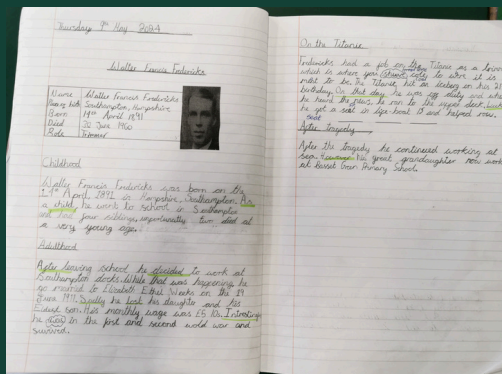 Thursday 9th May 2024
Walter Francis Fredericks
Name Walter Francis Fredericks
Place of birth Southampton, Hampshire
Born 14th April 1891
Died 20 June 1960
Role Trimmer
Childhood
Walter Francis Fredericks was born on the
April, 1891 in Hampshire, Southampton. As
a child, he went to school in Southampton
and had four siblings, unfortunately two died at
a very young age.
Adulthood
After leaving school he decided to work at
Southampton docks. While that was happening he
got married to Elizabeth Ethel Weeks on the 19
June 1911. Sadly he lost his daughter and his
son. His monthly wage was £5 10s. Interestingly
he in the first and second world war and
survived.
On the Titanic
Fredericks had a job on the Titanic as a trimmer
which is where you coal to where it is
meant to be. The Titanic, hit an iceberg on his 21
birthday. On that day he was off duty and when
he heard the news, he ran to the upper deck.
he got a seat in life-boat and helped row.
After Tragedy
After the tragedy he continued working at
sea. However his great grandaughter now work
at Basset Green Primary School.